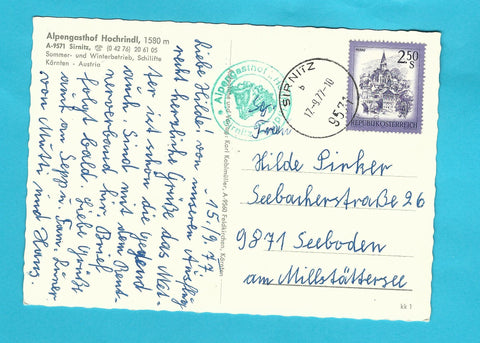 Alpengasthof Hochrindl, 1580 m
A-9571 Sirnitz, ☏ (0 42 76) 20 61 05
Sommer- und Winterbetrieb, Schilifte
Kärnten - Austria
15/9.77
Liebe Hilde! von unserem Ausflug
recht herzliche Grüße das Wet-
ter ist schön die Gegend
auch. Sind mit dem Rent-
nerverband hier. Brief
folgt bald. Liebe Grüße
auch an Sepp u. Fam.
von Mutti und Hans.
Alpengasthof
SIRNITZ
b
12.9.77-10
9571
2.50
REPUBLIK ÖSTERREICH
Hilde Pirker
Seebacherstraße 26
9871 Seeboden
am Millstättersee
Karl Kohlmüller, A-9560 Feldkirchen, Kärnten
kk 1